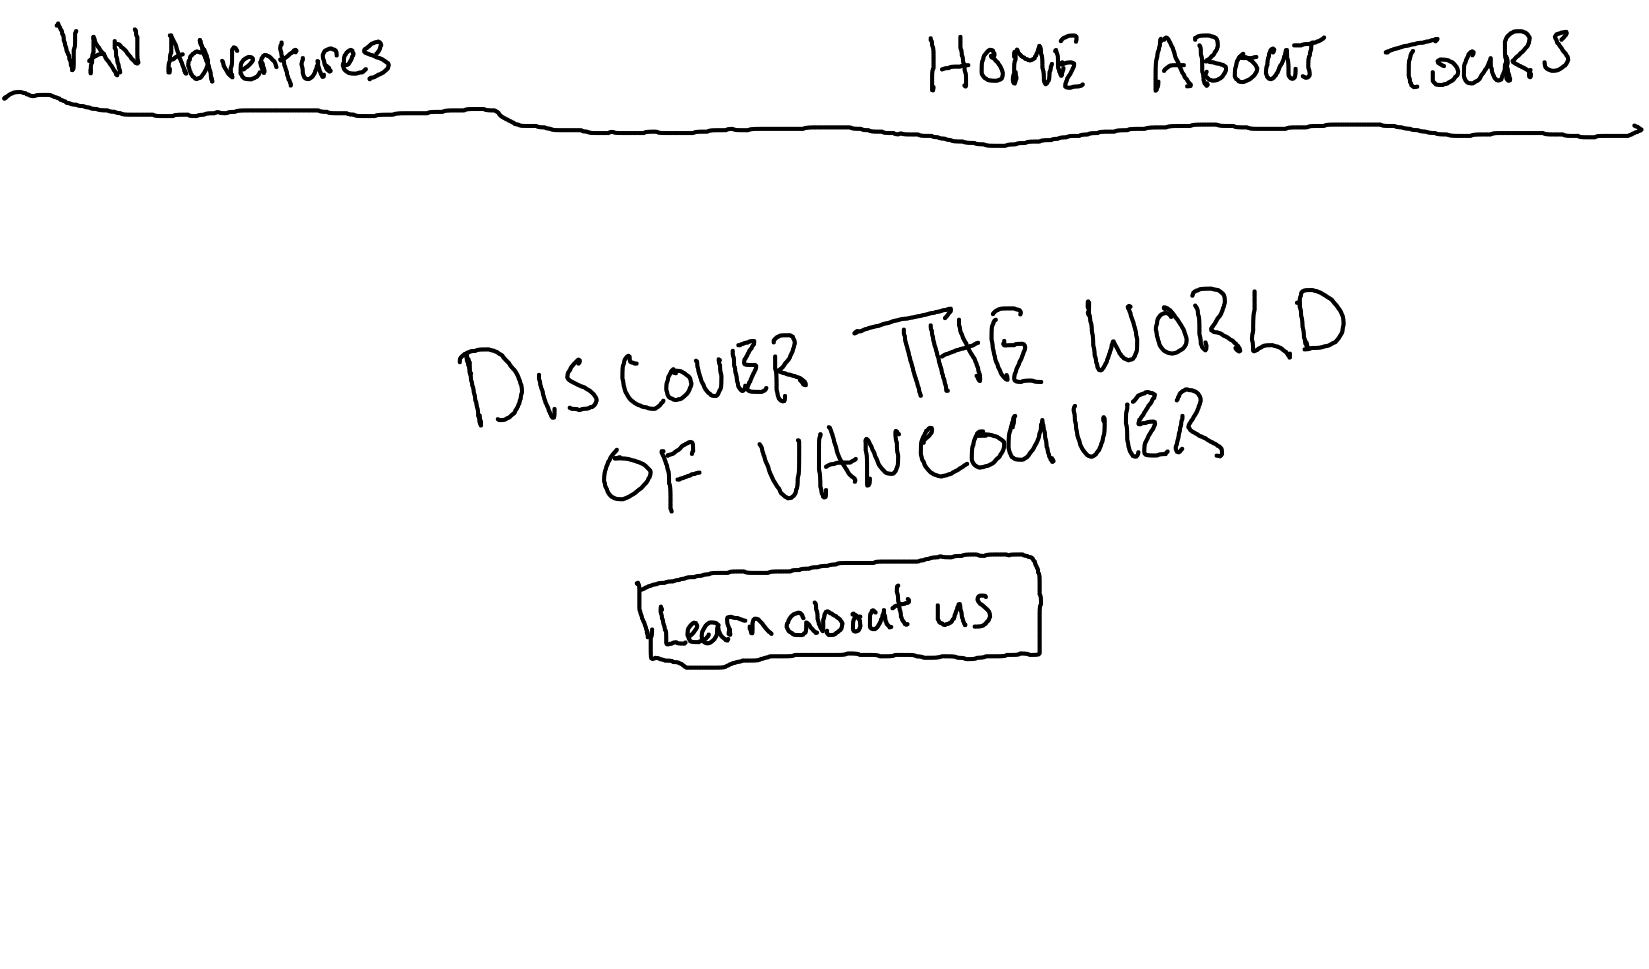 VAN Adventures HOME ABOUT TOURS
DISCOVER THE WORLD
OF VANCOUVER
Learn about us